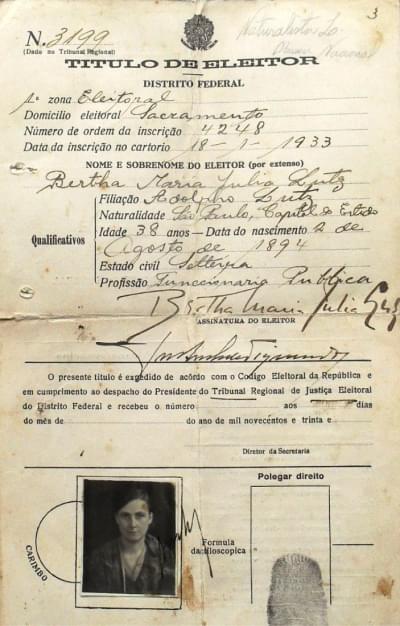 3
Naturalista do
Museu Nacional
N. 3199
(Dado no Tribunal Regional)
TITULO DE ELEITOR
DISTRITO FEDERAL
1ª zona Eleitoral
Domicilio eleitoral Sacramento
Número de ordem da inscrição 4248
Data da inscrição no cartorio 18-1-1933
NOME E SOBRENOME DO ELEITOR (por extenso)
Bertha Maria Julia Lutz
Qualificativos
Filiação Adolpho Lutz
Naturalidade São Paulo, Capital do Estado
Idade 38 anos — Data do nascimento 2 de
Agosto de 1894
Estado civil Solteira
Profissão Funccionaria Publica
Bertha Maria Julia Lutz
ASSINATURA DO ELEITOR
O presente titulo é expedido de acôrdo com o Codigo Eleitoral da República e
em cumprimento ao despacho do Presidente do Tribunal Regional de Justiça Eleitoral
do Distrito Federal e recebeu o número aos dias
do mês de do ano de mil novecentos e trinta e
Diretor da Secretaria
Polegar direito
CARIMBO
Formula
datiloscopica